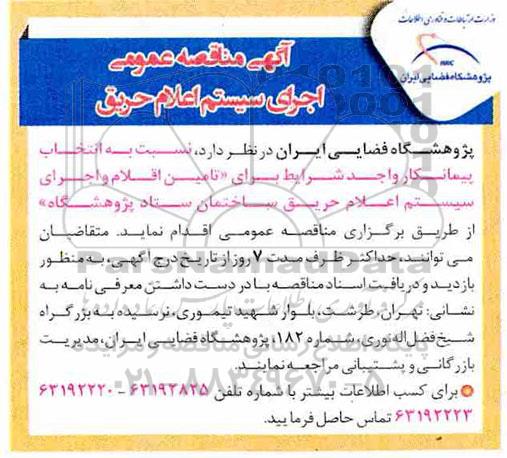 وزارت ارتباطات و فناوری اطلاعات
ISRC
پژوهشگاه فضایی ایران
آگهی مناقصه عمومی
اجرای سیستم اعلام حریق
پژوهشگاه فضایی ایران در نظر دارد، نسبت به انتخاب
پیمانکار واجد شرایط برای «تامین اقلام و اجرای
سیستم اعلام حریق ساختمان ستاد پژوهشگاه»
از طریق برگزاری مناقصه عمومی اقدام نماید. متقاضیان
می توانند، حداکثر ظرف مدت ۷ روز از تاریخ درج آگهی، به منظور
بازدید و دریافت اسناد مناقصه با در دست داشتن معرفی نامه به
نشانی: تهران، طرشت، بلوار شهید تیموری، نرسیده به بزرگراه
شیخ فضل اله نوری، شماره ۱۸۲، پژوهشگاه فضایی ایران، مدیریت
بازرگانی و پشتیبانی مراجعه نمایند.
برای کسب اطلاعات بیشتر با شماره تلفن ۶۳۱۹۲۸۲۵ - ۶۳۱۹۲۲۲۰
۶۳۱۹۲۲۲۳ تماس حاصل فرمایید.
ParsNamadData
۰۲۱-۸۸۳۴۹۶۷۰-۵